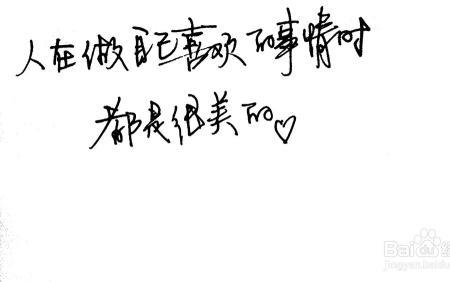 人在做自己喜欢的事情时
都是很美的♡
Baidu经
jingyan.baidu